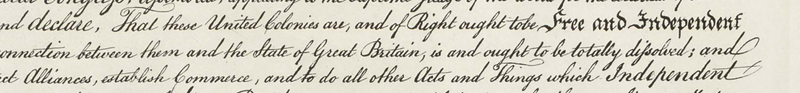 nd declare, That these United Colonies are, and of Right ought to be, Free and Independent
onnection between them and the State of Great Britain, is and ought to be totally dissolved; and
ct Alliances, establish Commerce, and to do all other Acts and Things which Independent